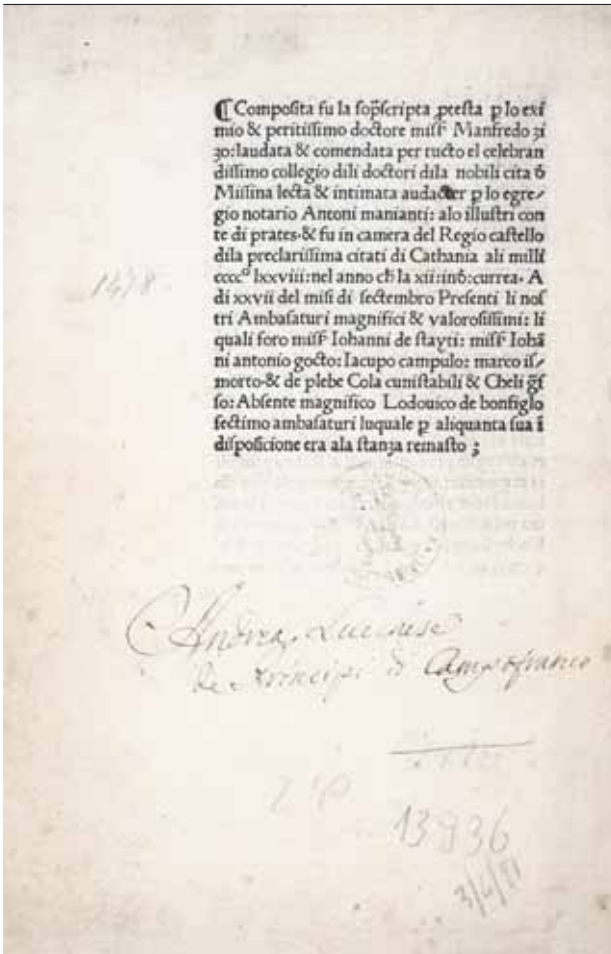 ¶ Composita fu la sop̃scripta ꝓtesta ꝑ lo exi
mio & peritissimo doctore miss̃ Manfredo zi
zo: laudata & comendata per tucto el celebran
dissimo collegio dili doctori dila nobili cita ð
Missina lecta & intimata audacter ꝑ lo egre⸗
gio notario Antoni manianti: alo illustri con
te di prates· & fu in camera del Regio castello
dila preclarissima citati di Cathania ali milli
1478
cccc° lxxviii: nel anno ch̃ la xii: inð: currea. A
di xxvii del misi di sectembro Presenti li nos
tri Ambasaturi magnifici & valorosissimi: li
quali foro miss̃ Iohanni de stayti: miss̃ Iohã
ni antonio gocto: Iacupo campulo: marco is⸗
morto· & de plebe Cola cunistabili & Cheli g̃s
so: Absente magnifico Lodouico de bonfiglo
sectimo ambasaturi luquale ꝑ aliquanta sua ĩ
disposicione era ala stanza remasto ;
Andrea Lucchese
de Principi di Campofranco
13936
3/4/81